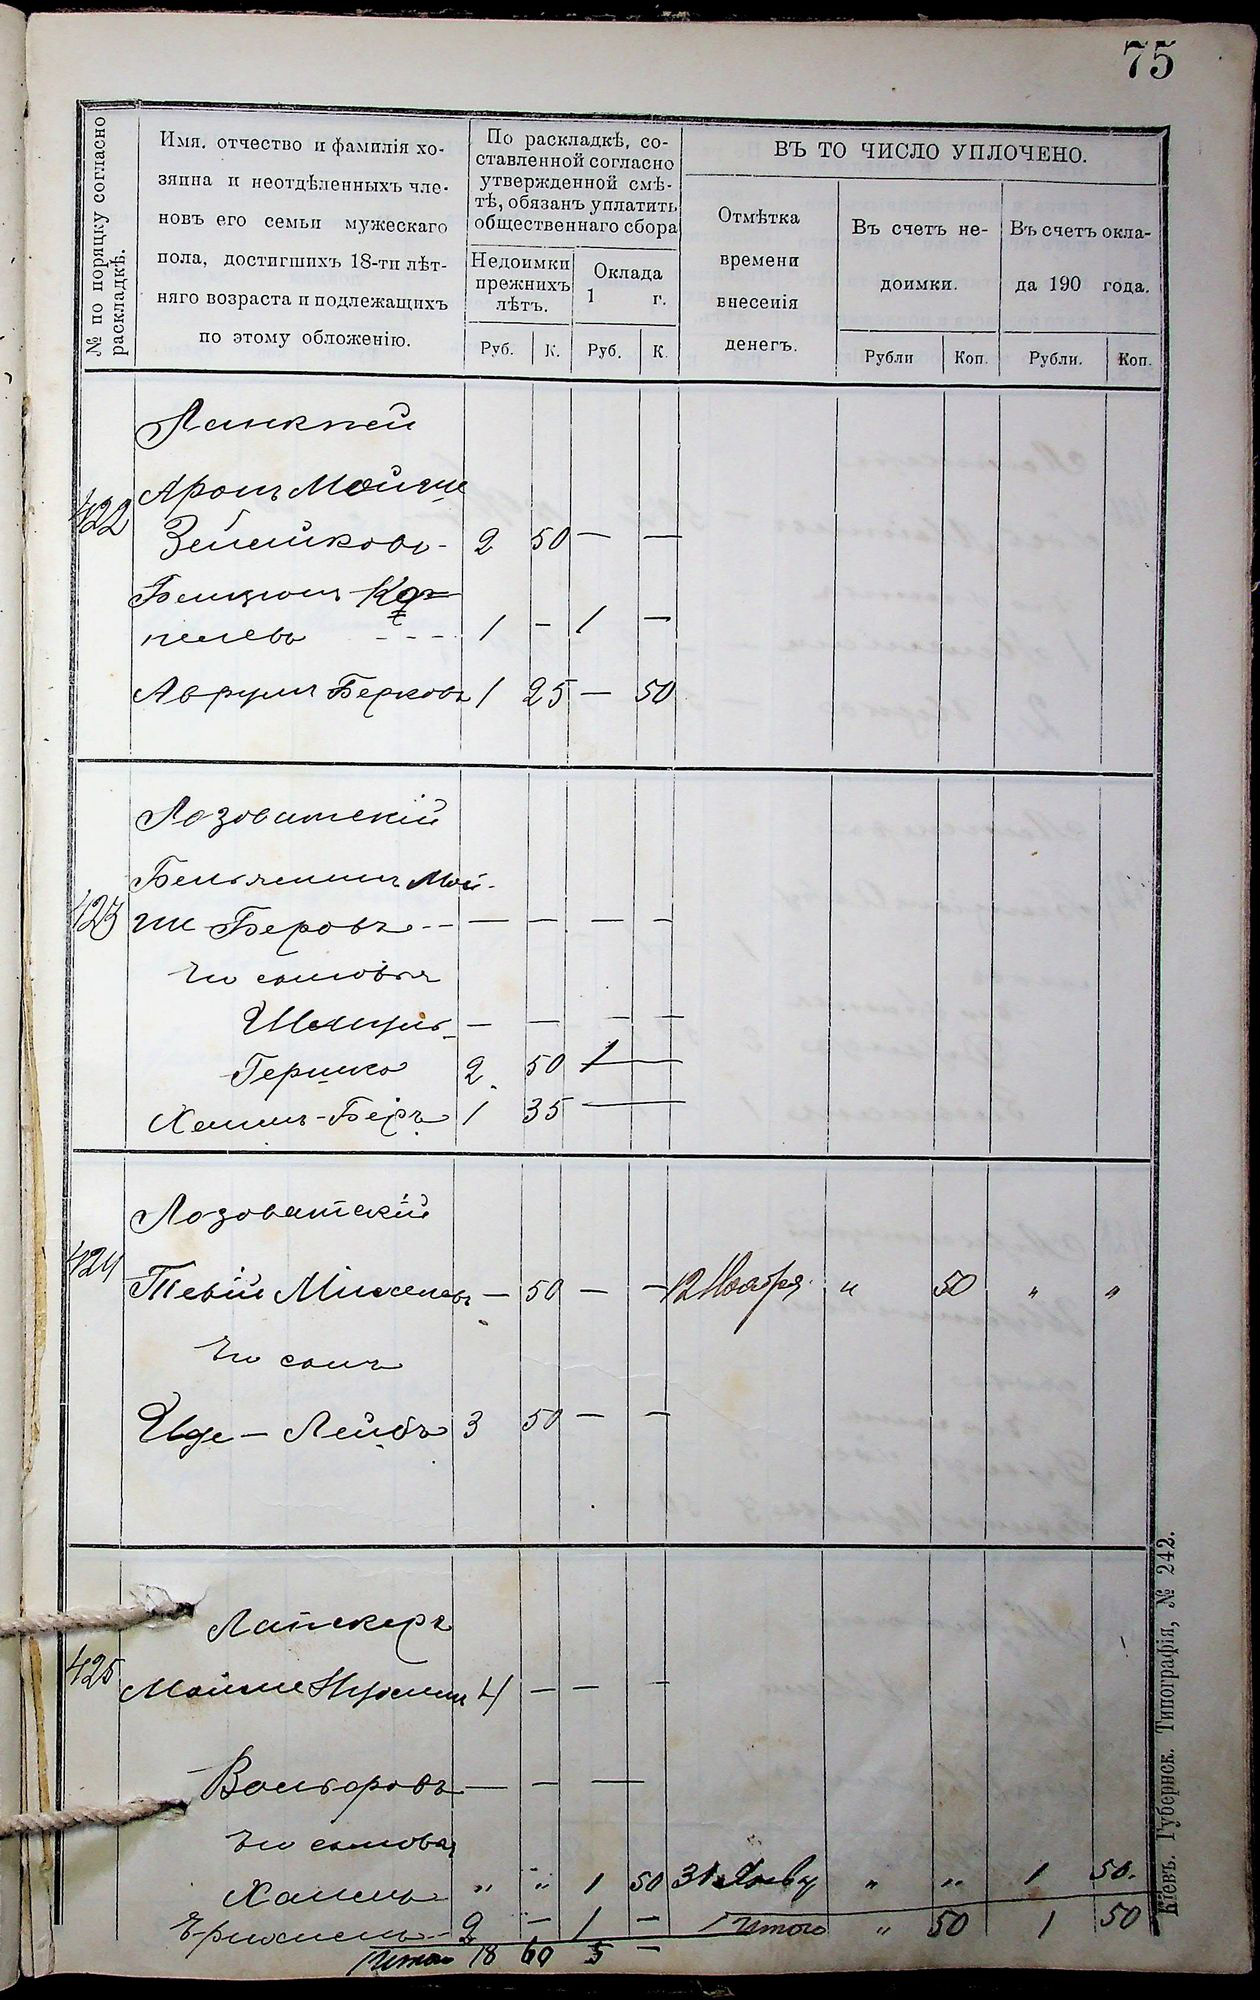 75
№ по порядку согласно раскладкѣ.
Имя, отчество и фамилія хо-
зяина и неотдѣленныхъ чле-
новъ его семьи мужескаго
пола, достигшихъ 18-ти лѣт-
няго возраста и подлежащихъ
по этому обложенію.
По раскладкѣ, со-
ставленной согласно
утвержденной смѣ-
тѣ, обязанъ уплатить
общественнаго сбора
Недоимки
прежнихъ
лѣтъ.
Оклада
1 г.
Руб. К. Руб. К.
ВЪ ТО ЧИСЛО УПЛОЧЕНО.
Отмѣтка
времени
внесенія
денегъ.
Въ счетъ не-
доимки.
Въ счетъ окла-
да 190 года.
Рубли Коп. Рубли. Коп.
422
Аронъ Мойше
2 50 — —
Бенціонъ
пелевъ - - - 1 — 1 —
Аврумъ Берковъ 1 25 — 50
Лозоватскій
423
Беньяминъ Мой-
ше Беровъ - - — — — —
Его сыновья
Шмуль — — — —
Гершко 2 50 1 —
Хаимъ-Беръ 1 35 —
Лозоватскій
424
Тевій Михелевъ — 50 — — 12 Ноября " 50 " "
Его сынъ
Иде-Лейбъ 3 50 — —
425
Мойше 4 — — —
Вольфовъ — — —
Его сыновья
" " 1 50 31 Янву " " 1 50.
2 — 1 — Итого " 50 1 50
Итого 18 60 5 —
Кіевъ. Губернск. Типографія, № 242.